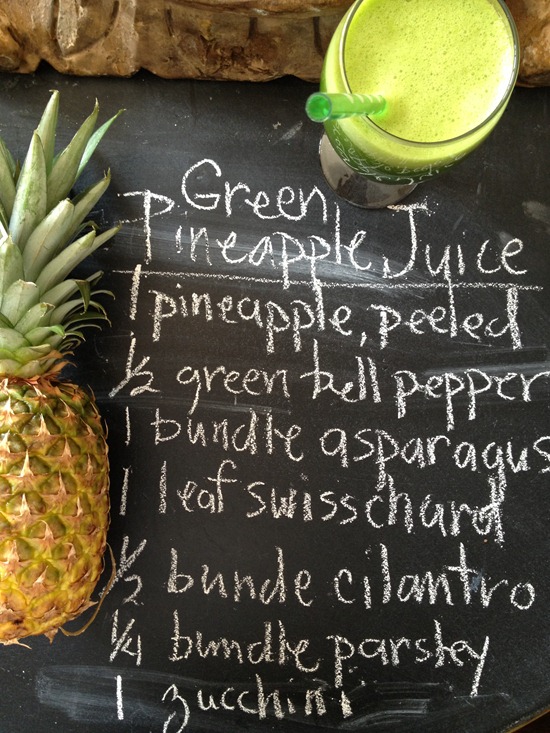 Green
Pineapple Juice
1 pineapple, peeled
1/2 green bell pepper
1 bundle asparagus
1 leaf swiss chard
1/2 bunde cilantro
1/4 bundle parsley
1 zucchini